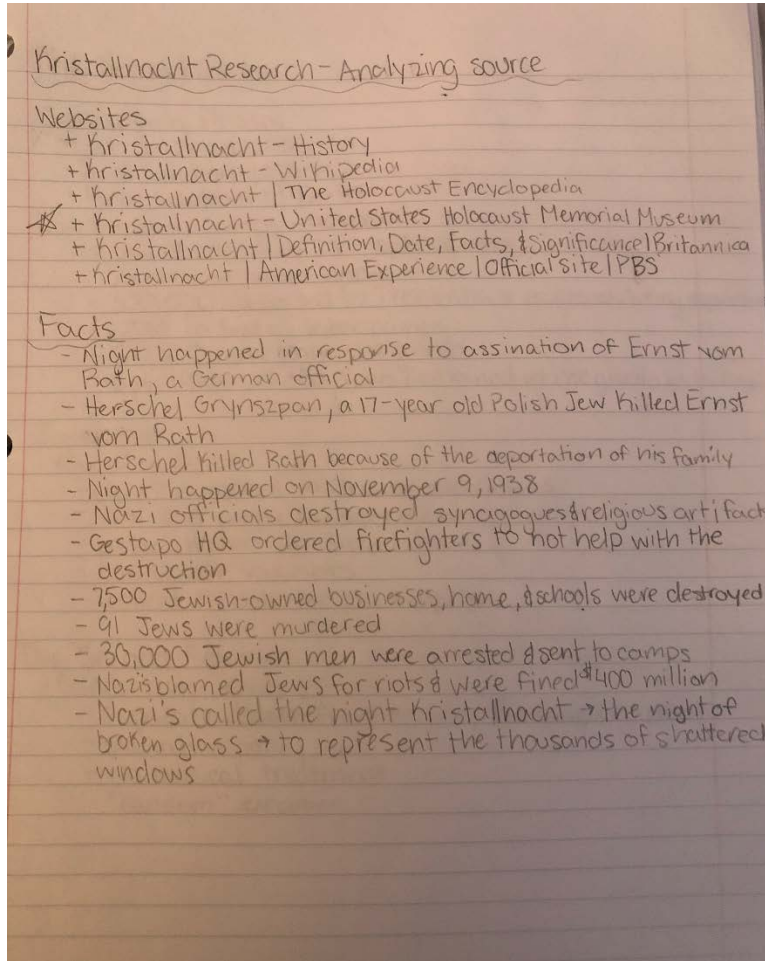 Kristallnacht Research - Analyzing source
Websites
+ Kristallnacht - History
+ Kristallnacht - Wikipedia
+ Kristallnacht | The Holocaust Encyclopedia
+ Kristallnacht - United States Holocaust Memorial Museum
+ Kristallnacht | Definition, Date, Facts, & Significance | Britannica
+ Kristallnacht | American Experience | Official Site | PBS
Facts
- Night happened in response to assination of Ernst vom
Rath, a German official
- Herschel Grynszpan, a 17-year old Polish Jew killed Ernst
vom Rath
- Herschel killed Rath because of the deportation of his family
- Night happened on November 9, 1938
- Nazi officials destroyed synagogues & religious artifact
- Gestapo HQ ordered firefighters to not help with the
destruction
- 7,500 Jewish-owned businesses, home, & schools were destroyed
- 91 Jews were murdered
- 30,000 Jewish men were arrested & sent to camps
- Nazis blamed Jews for riots & were fined $400 million
- Nazi's called the night Kristallnacht → the night of
broken glass → to represent the thousands of shattered
windows